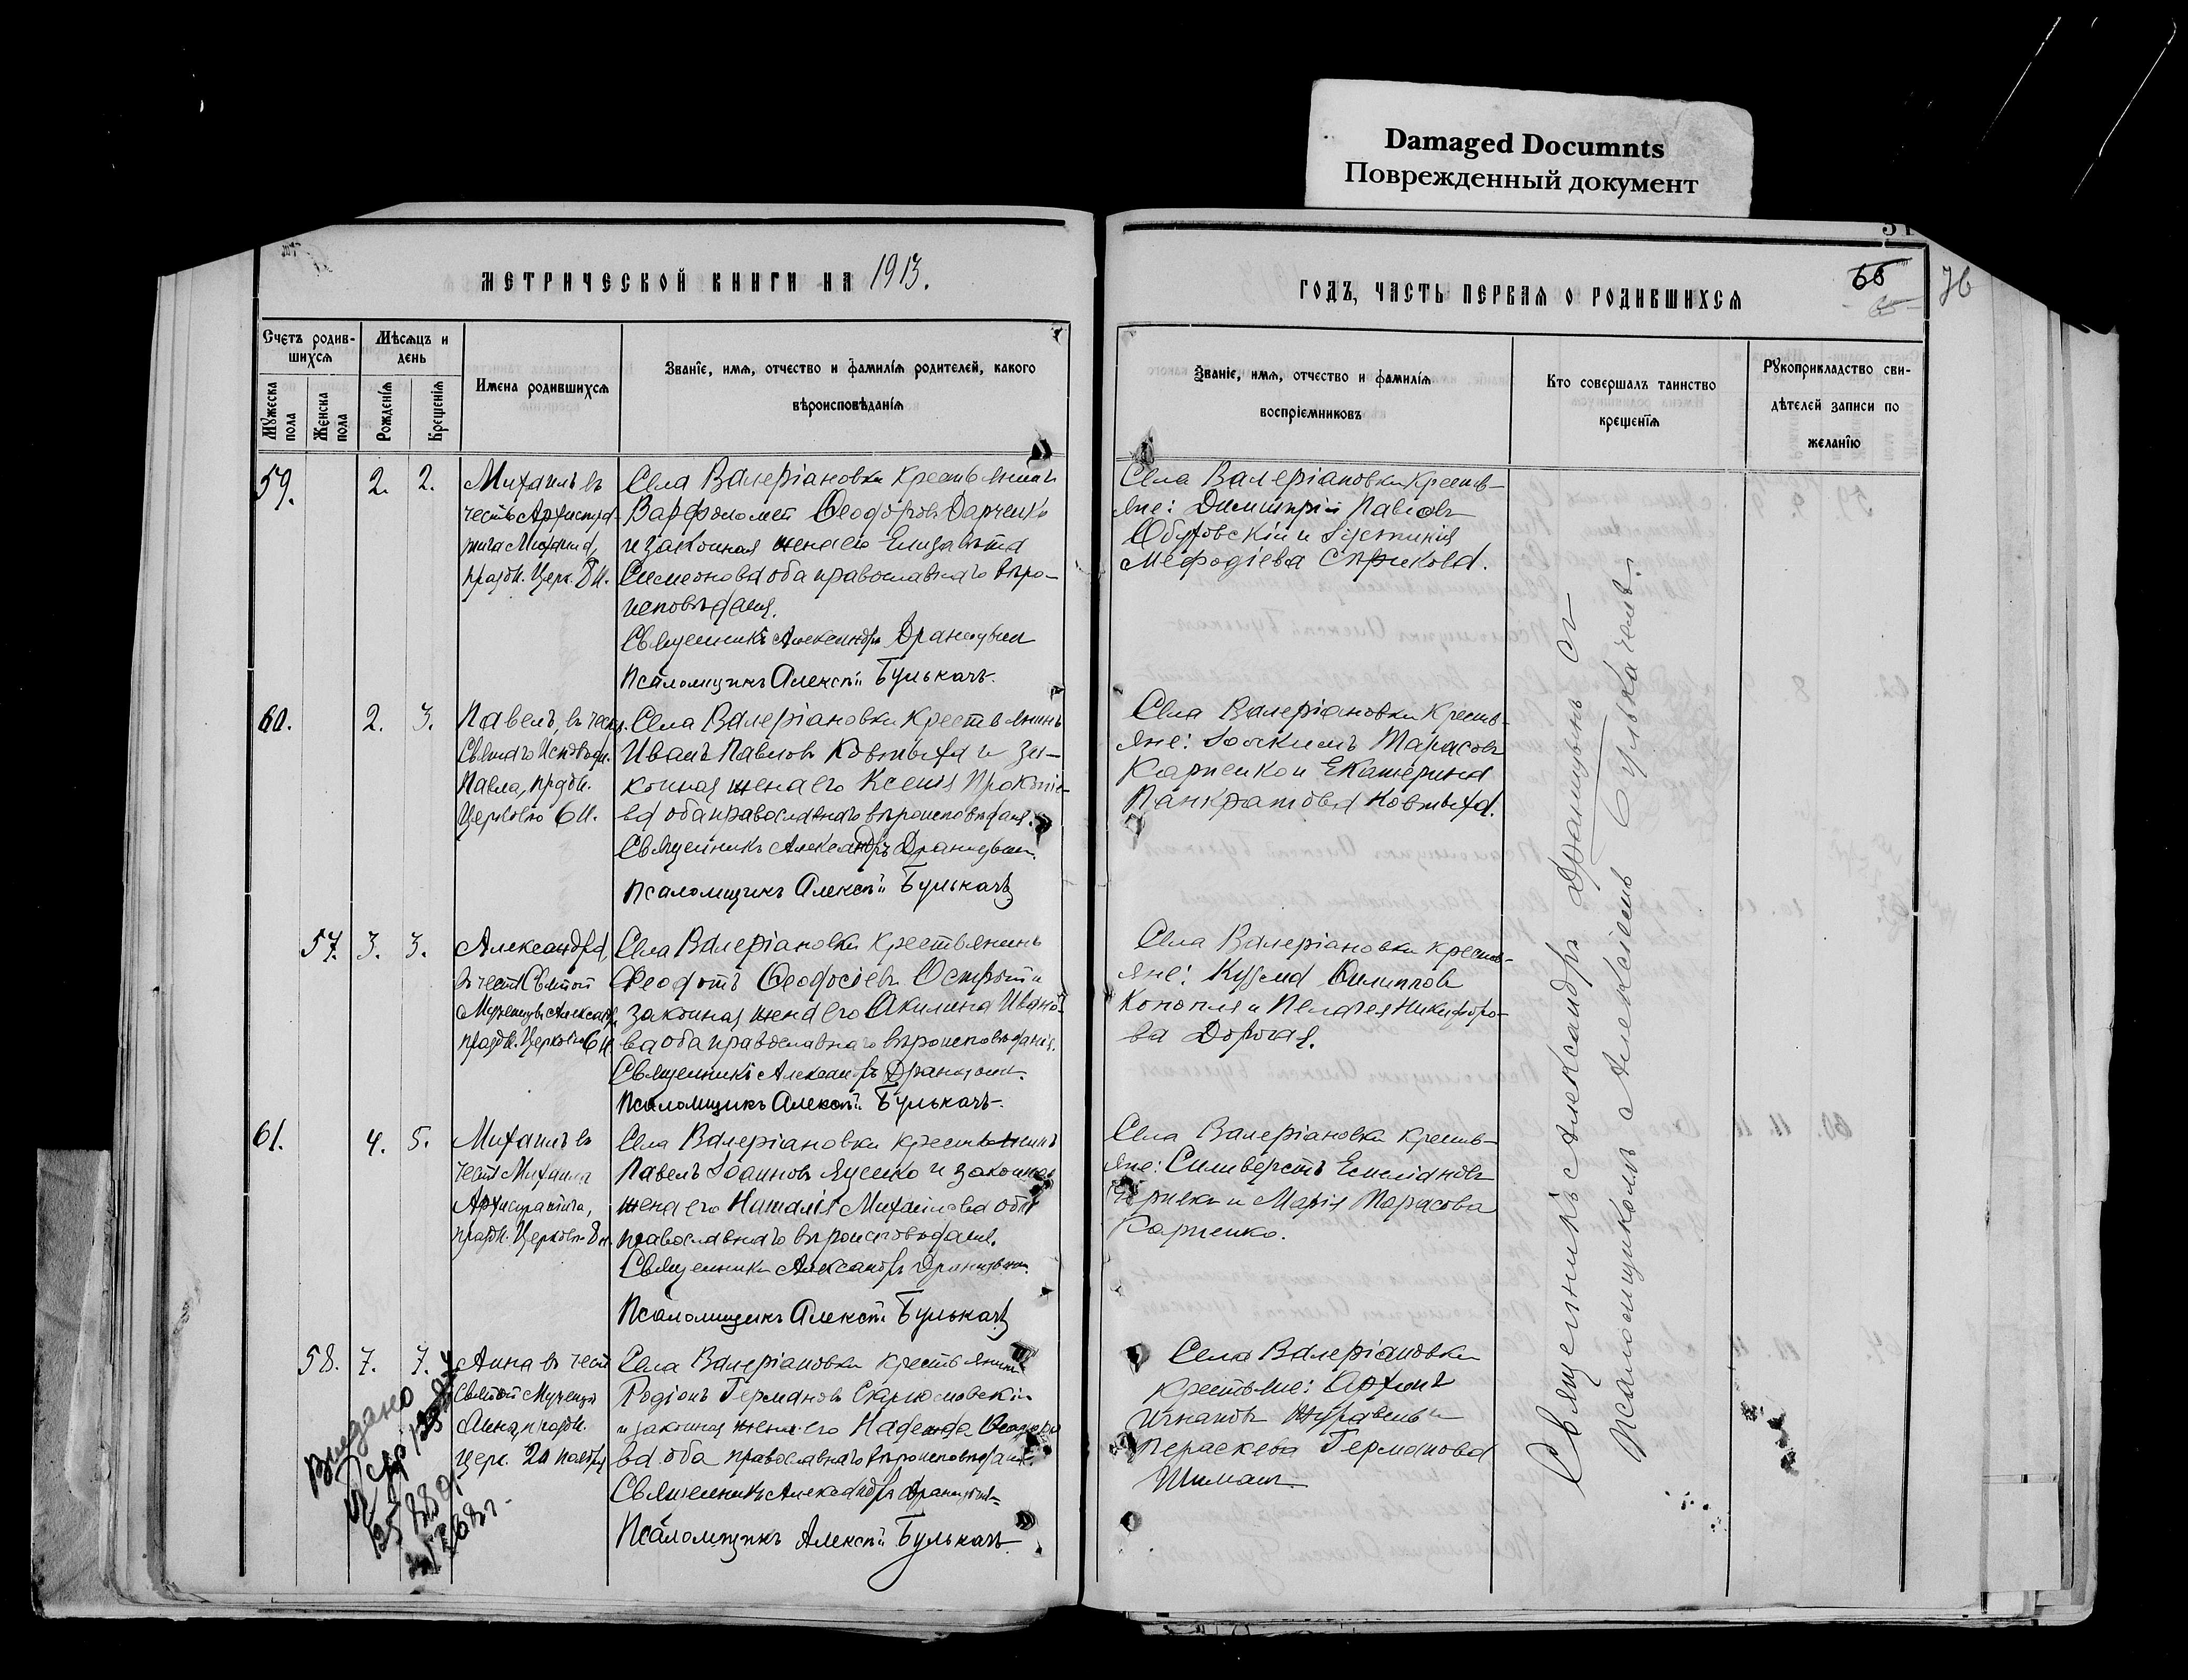 Damaged Documnts
Поврежденный документ
МЕТРИЧЕСКОЙ КНИГИ НА 1913.
Счетъ родив-
шихся
Мѣсяцъ и
день
Мужеска
пола
Женска
пола
Рожденія
Крещенія
Имена родившихся
Званіе, имя, отчество и фамилія родителей, какого
вѣроисповѣданія
59.
2. 2.
Михаилъ въ
честь Архистра-
тига Михаила,
праздн. Церк. 8 Н.
Села Валеріановки крестьянинъ
Варфоломей Феодоровъ Дарченко
и законная жена его Елизавета
Симеонова оба православнаго вѣро-
исповѣданія.
Священникъ Александръ Араницынъ
Псаломщикъ Алексѣй Булькачъ.
60.
2. 3.
Павелъ, въ честь
Святаго Исповѣдн.
Павла, праздн.
Церковію 6 Н.
Села Валеріановки Крестьянинъ
Иванъ Павловъ Ковтыха и за-
конная жена его Ксенія Прокопіе-
ва оба православнаго вѣроисповѣданія.
Священникъ Александръ
Псаломщикъ Алексѣй Булькачъ
57.
3. 3.
Александра,
въ честь Святой
Мученицы Александры
праздн. Церковію 6 Н.
Села Валеріановки крестьянинъ
Феодотъ Феодосіевъ Острый и
законная жена его Акилина Ивано-
ва оба православнаго вѣроисповѣданія.
Священникъ Александръ
Псаломщикъ Алексѣй Булькачъ.
61.
4. 5.
Михаилъ въ
честь Михаила
Архистратига,
праздн. Церковію 8 н.
Села Валеріановки крестьянинъ
Павелъ Іоанновъ Яценко и законная
жена его Наталія Михайлова оба
православнаго вѣроисповѣданія.
Священникъ Александръ
Псаломщикъ Алексѣй Булькачъ
58.
7. 7.
Анна въ честь
Святой Мученицы
Анна, праздн.
церк. 20 ноября
Села Валеріановки крестьянинъ
Родіонъ Германовъ
и законная жена его Надежда
ва оба православнаго вѣроисповѣданія.
Священникъ Александръ
Псаломщикъ Алексѣй Булькачъ
Выдано
ГОДЪ, ЧАСТЬ ПЕРВАЯ О РОДИВШИХСЯ
66
76
Званіе, имя, отчество и фамилія
воспріемниковъ
Кто совершалъ таинство
крещенія
Рукоприкладство сви-
дѣтелей записи по
желанію
Села Валеріановки Кресть-
яне: Димитрій Павловъ
Обуховскій и
Мефодіева
Села Валеріановки Кресть-
яне: Іоакимъ Тарасовъ
Карпенко и Екатерина
Панкратова Ковтыха.
Села Валеріановки кресть-
яне: Кузьма Филиповъ
Конопля и Пелагея Никифоро-
ва Дорогая.
Села Валеріановки кресть-
яне: Сильверстъ Емеліановъ
и Марія Тарасова
Карпенко.
Села Валеріановки
крестьяне:
Игнатовъ Журавель и
Параскева Германова
Шиманъ
Священникъ Александръ Араницынъ съ
Псаломщикомъ Алексіемъ Булькачемъ.